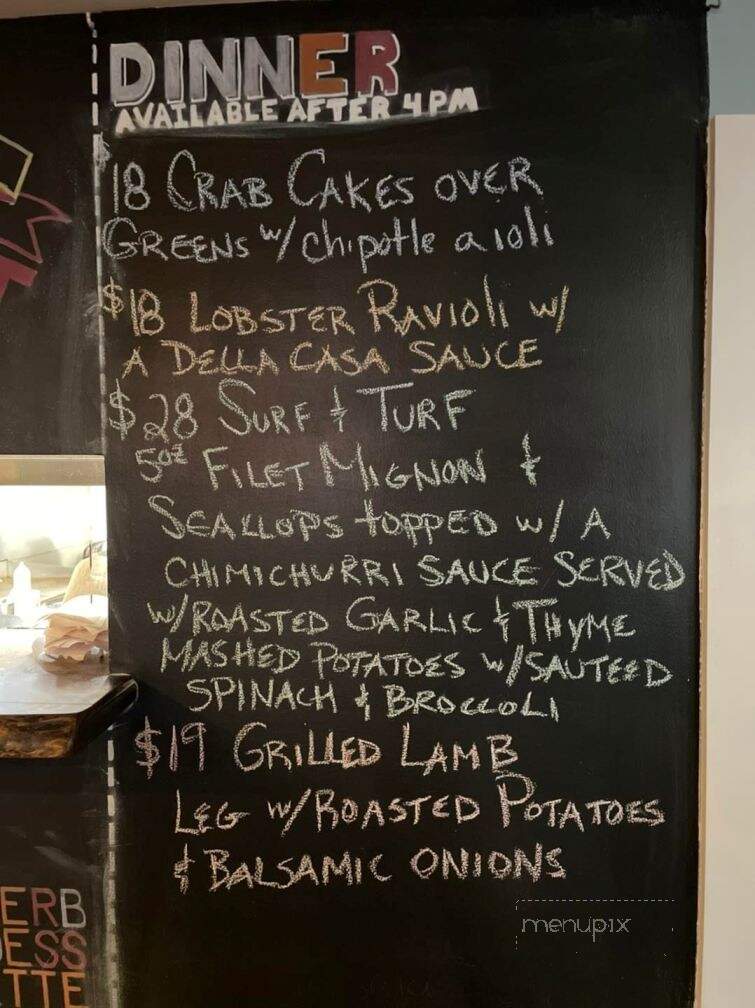 DINNER
AVAILABLE AFTER 4PM
$18 CRAB CAKES OVER
GREENS w/ chipotle aioli
$18 LOBSTER RAVIOLI w/
A DELLA CASA SAUCE
$28 SURF & TURF
5oz FILET MIGNON &
SCALLOPS TOPPED w/ A
CHIMICHURRI SAUCE SERVED
w/ROASTED GARLIC & THYME
MASHED POTATOES w/SAUTEED
SPINACH & BROCCOLI
$19 GRILLED LAMB
LEG w/ROASTED POTATOES
& BALSAMIC ONIONS
ERB
ESS
TTE
menupix